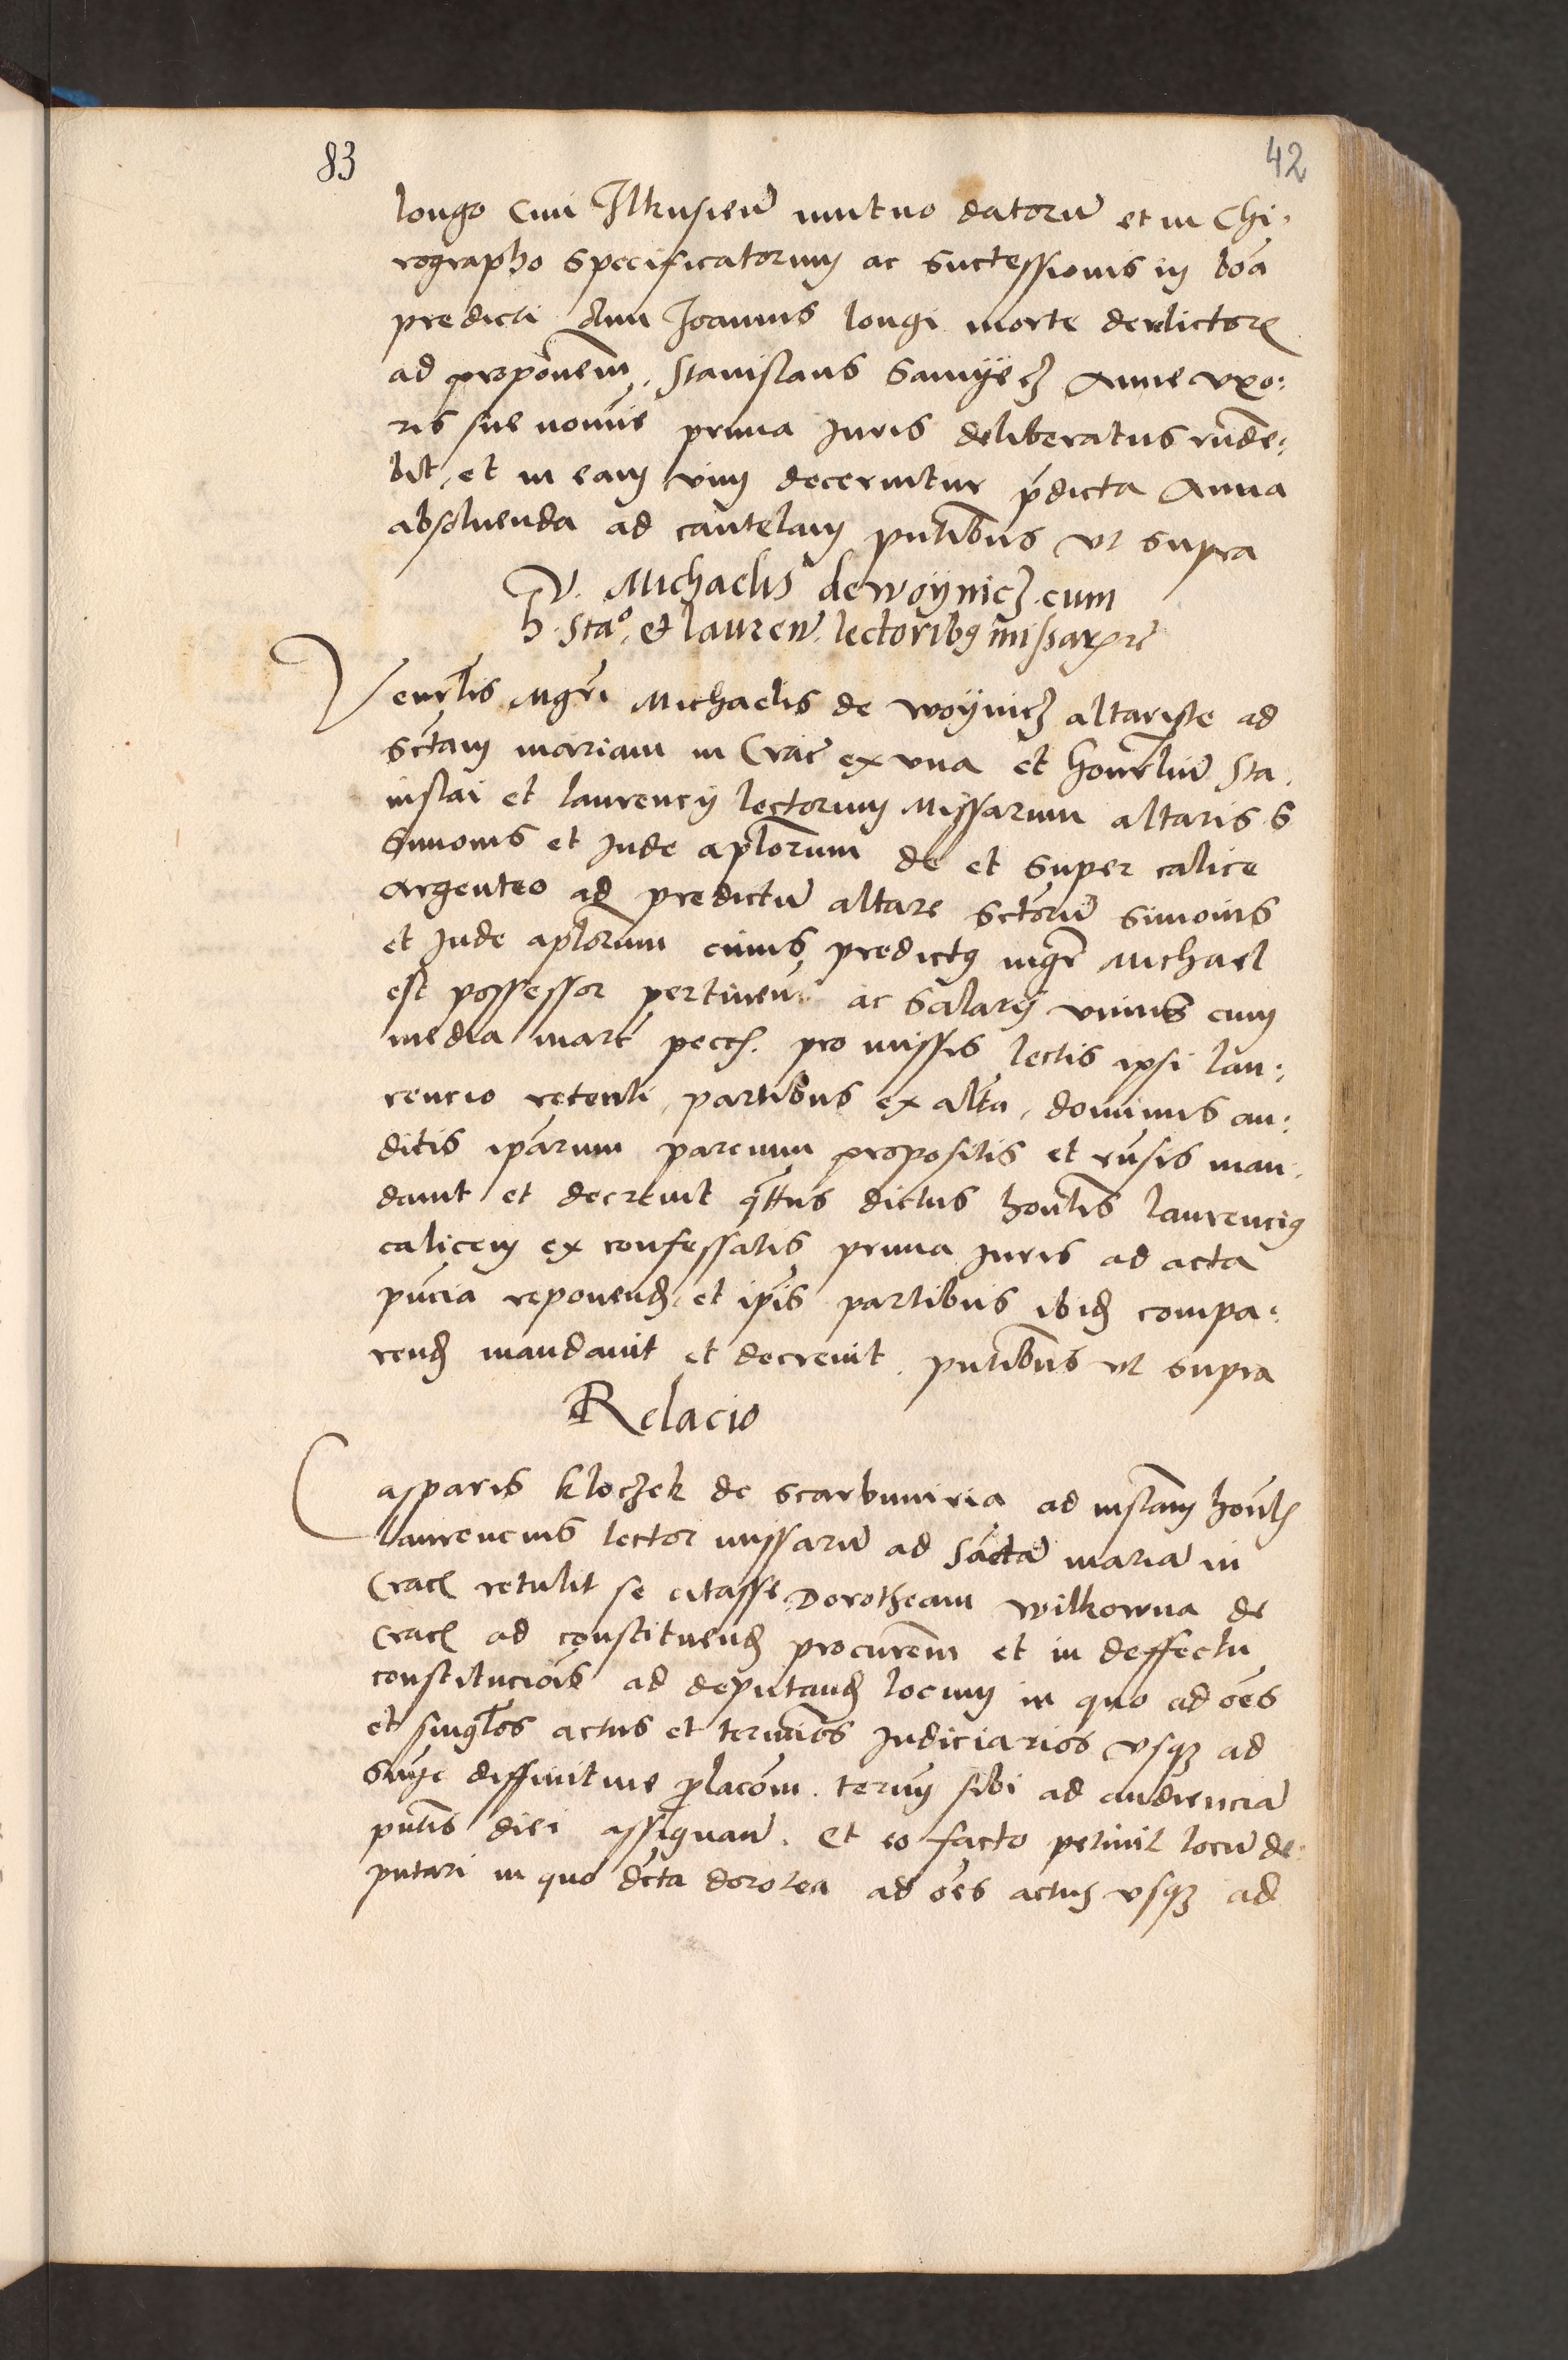 83
42
longo Civi Ilkusieñ mutuo datorū et in Chi-
rographo specificatorum ac successionis in bōa
predicti dnni Joannis longi morte derelictorꝝ
ad proponeñm, Stanislaus Samyecz Anne vxo-
ris sue noīe prima Juris deliberatus rñde-
bit, et in eam vim decernitur p̄dicta Anna
absoluenda ad cautelam pñtibus vt supra
V. Michaelis de woynicz cum
h. Staᵒ. et laureñ. lectoribꝯ missarꝝ
Veneŕlis Mgr̄i Michaelis de woynicz altariste ad
sctam mariam in Crač ex vna et honoŕliū Sta-
nislai et laurencij lectorum Missarum altaris S
Simonis et Jude apłorum de et super calice
argenteo ad predictū altare sctorū Simonis
et Jude apłorum cuius predictꝯ mgr̄ Michael
est possessor pertineñ ac Salarij vnius cum
media marč pecč. pro missis lectis ipsi lau-
rencio retenti, partibus ex alīa, dominus au-
ditis ip̄arum parcium propositis et rñsis man-
dauit et decreuit q̄ttus dictus hoñlis laurenciꝯ
calicem ex confessatis prima Juris ad acta
pñcia reponenđ et ip̄is partibus ibiđ compa-
renđ mandauit et decreuit. pñtibus vt supra
Relacio
Casparis kloczek de scarbimiria ad instañm hoñlis
laurencius lector missarū ad sāctā mariā in
Crač retulit se citasse Dorotheam wilkowna de
Crač ad constituenđ procurem̄ et in deffectu
constitucōis ad deputanđ locum in quo ad oēs
et singłos actus et termīos Judiciarios vsqꝫ ad
snīe diffinitiue ꝓlacōm. termiñ sibi ad audienciā
pñtis diei assignañ. Et eo facto petiuit locū de-
putari in quo dcta dorotea ad oēs actus vsqꝫ ad